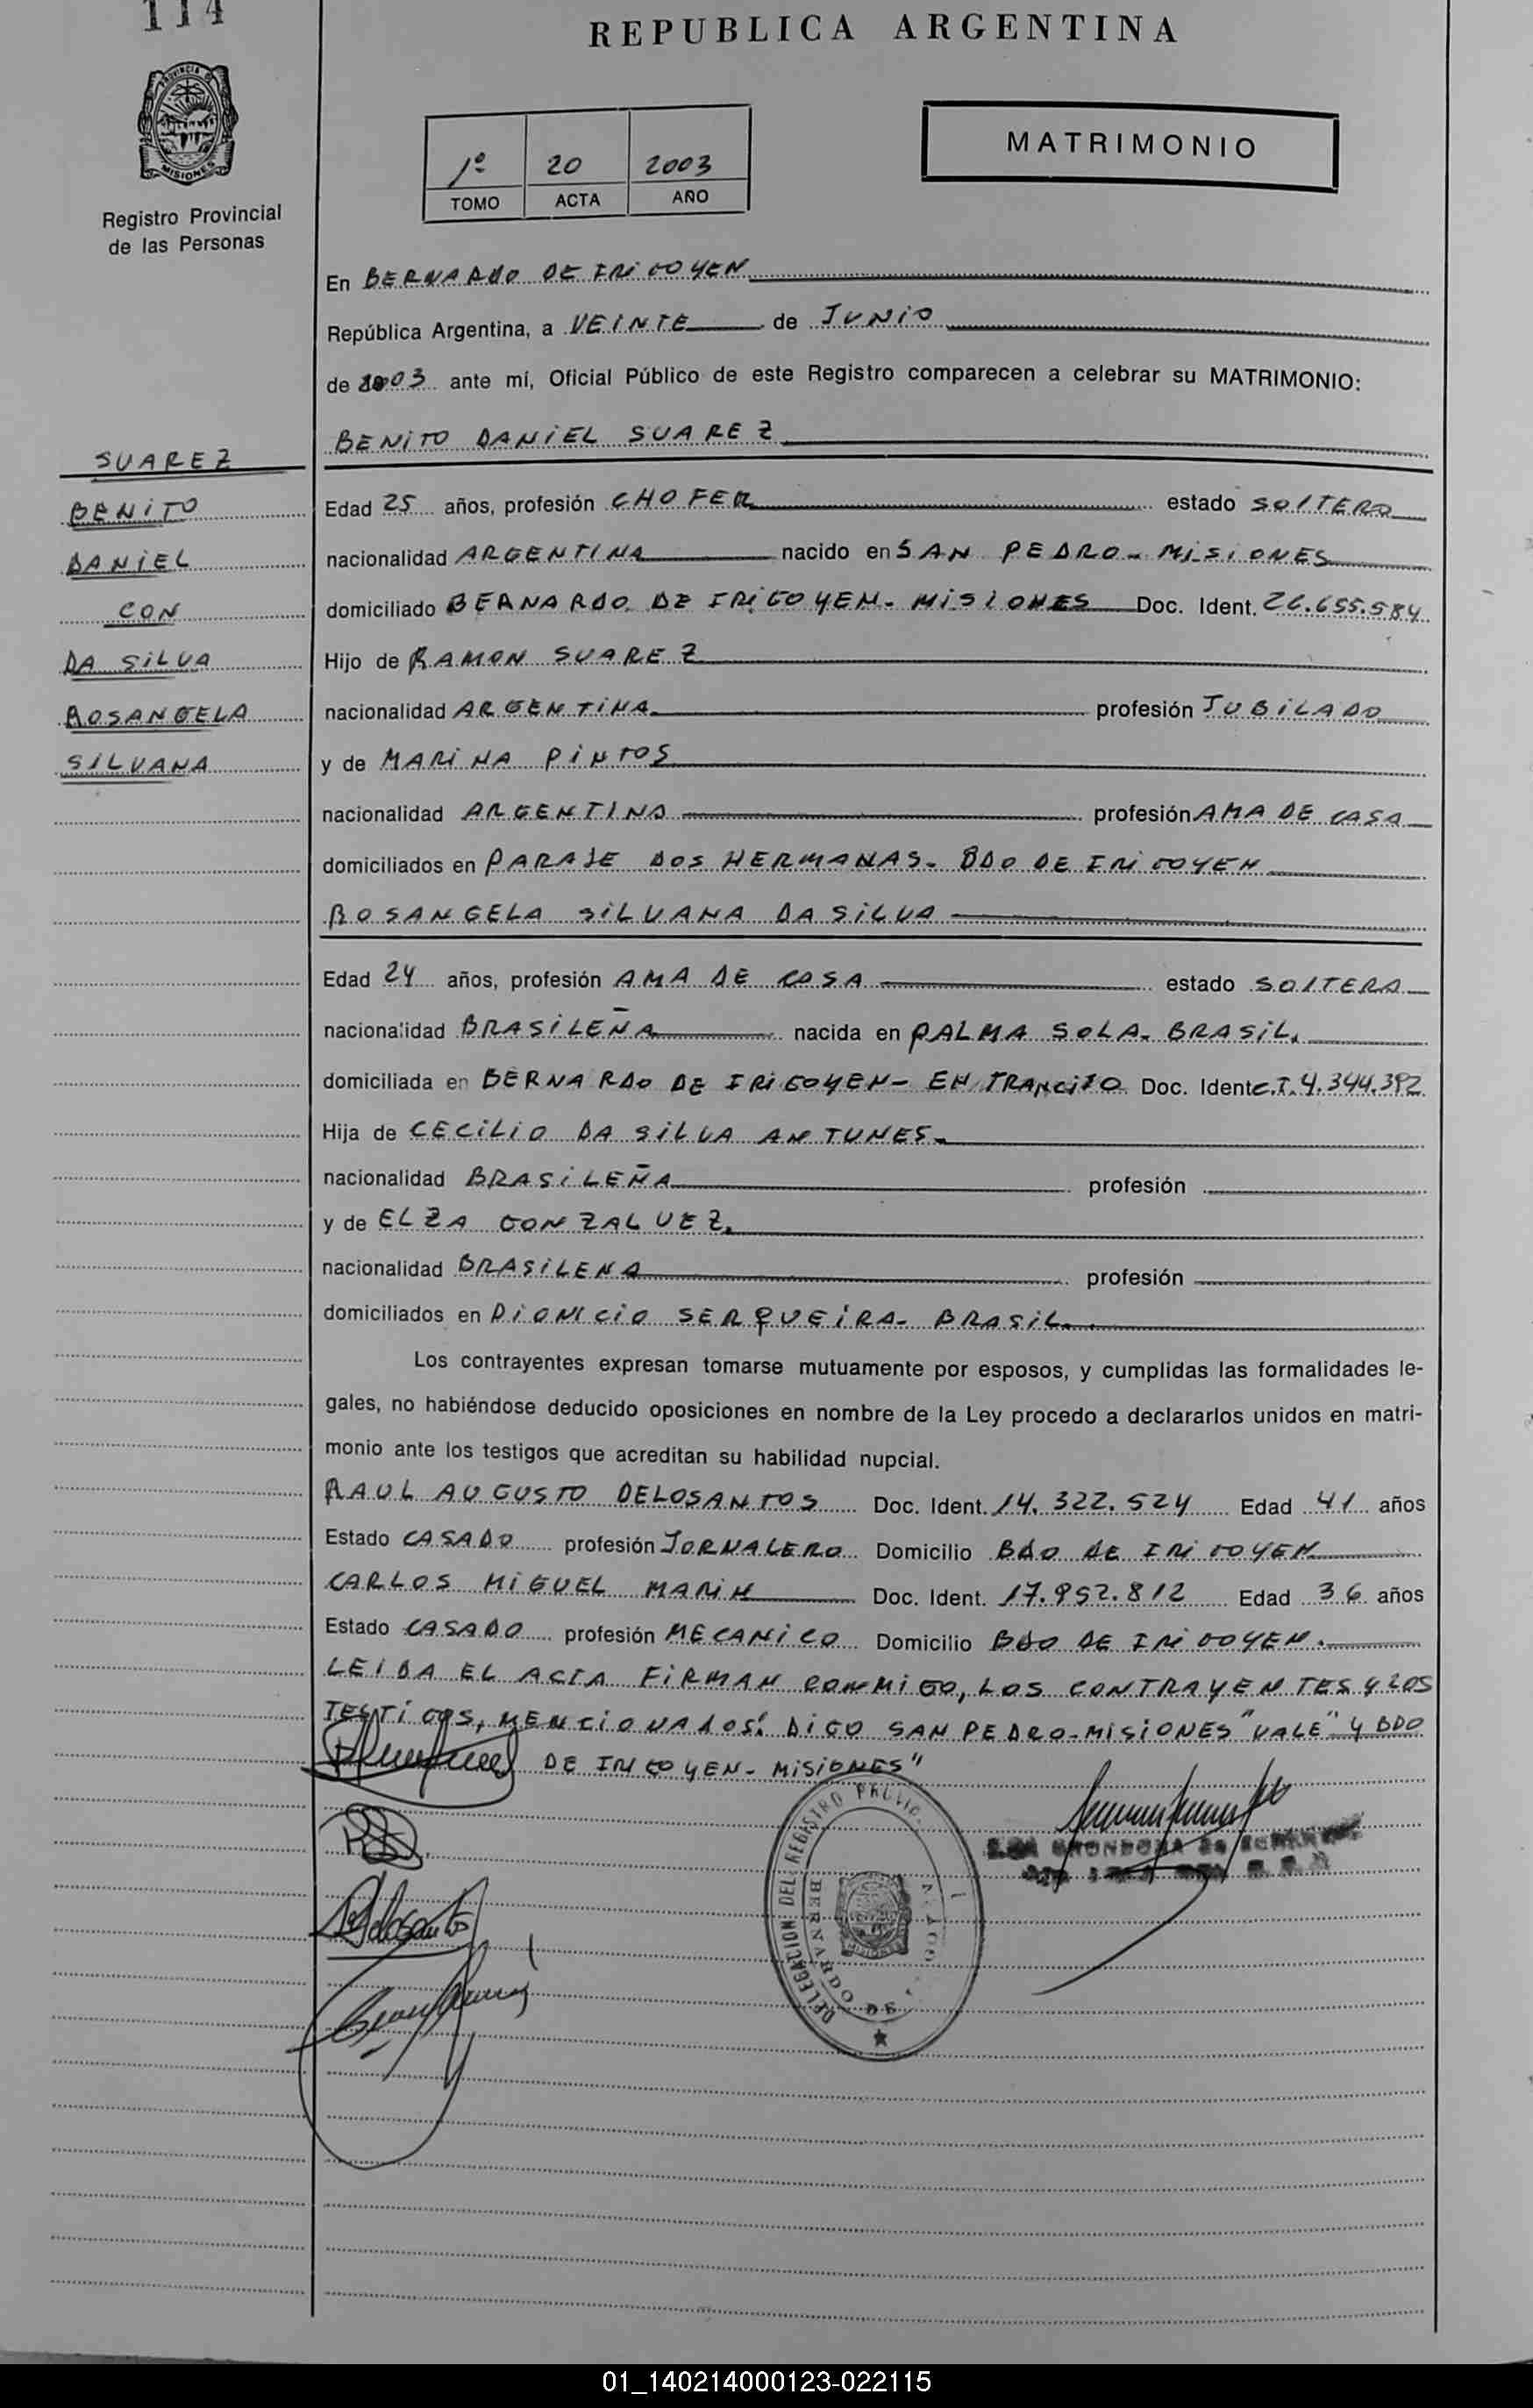 114
REPUBLICA ARGENTINA
PROVINCIA DE
MISIONES
Registro Provincial
de las Personas
1º 20 2003
TOMO ACTA AÑO
MATRIMONIO
En BERNARDO DE IRIGOYEN
República Argentina, a VEINTE de JUNIO
de 2003 ante mí, Oficial Público de este Registro comparecen a celebrar su MATRIMONIO:
BENITO DANIEL SUAREZ
SUAREZ
BENITO
DANIEL
CON
DA SILVA
ROSANGELA
SILVANA
Edad 25 años, profesión CHOFER estado SOLTERO
nacionalidad ARGENTINA nacido en SAN PEDRO - MISIONES
domiciliado BERNARDO DE IRIGOYEN - MISIONES Doc. Ident. 26.655.584
Hijo de RAMON SUAREZ
nacionalidad ARGENTINA profesión JUBILADO
y de MARINA PINTOS
nacionalidad ARGENTINA profesión AMA DE CASA
domiciliados en PARAJE DOS HERMANAS - BDO DE IRIGOYEN
ROSANGELA SILVANA DA SILVA
Edad 24 años, profesión AMA DE CASA estado SOLTERA
nacionalidad BRASILEÑA nacida en PALMA SOLA - BRASIL.
domiciliada en BERNARDO DE IRIGOYEN - EN TRANCITO Doc. Ident C.I. 4.344.392
Hija de CECILIO DA SILVA ANTUNES -
nacionalidad BRASILEÑA profesión
y de ELZA GONZALVEZ.
nacionalidad BRASILENA profesión
domiciliados en DIONICIO SERQUEIRA - BRASIL.
Los contrayentes expresan tomarse mutuamente por esposos, y cumplidas las formalidades le-
gales, no habiéndose deducido oposiciones en nombre de la Ley procedo a declararlos unidos en matri-
monio ante los testigos que acreditan su habilidad nupcial.
RAUL AUGUSTO DELOSANTOS Doc. Ident. 14.322.524 Edad 41 años
Estado CASADO profesión JORNALERO Domicilio BDO DE IRIGOYEN
CARLOS MIGUEL MARIN Doc. Ident. 17.952.812 Edad 36 años
Estado CASADO profesión MECANICO Domicilio BDO DE IRIGOYEN.
LEIDA EL ACTA FIRMAN CONMIGO, LOS CONTRAYENTES Y LOS
TESTIGOS, MENCIONADOS: DIGO SAN PEDRO - MISIONES "VALE" Y BDO
DE IRIGOYEN - MISIONES"
DELEGACION DEL REGISTRO
BERNARDO DE
01_140214000123-022115